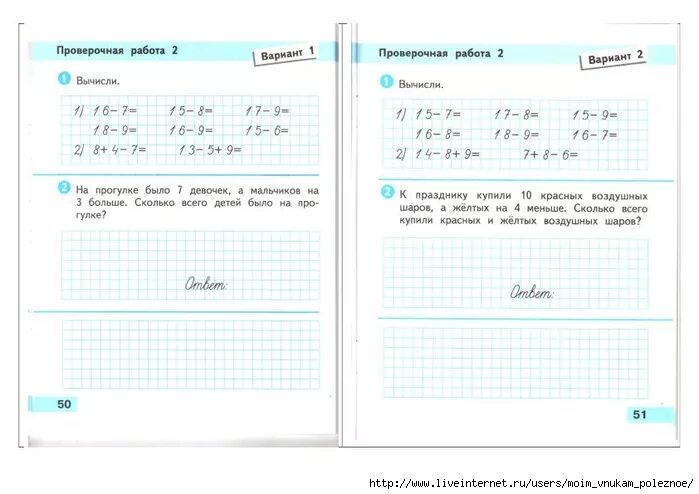 Проверочная работа 2
Вариант 1
1 Вычисли.
1) 16-7= 15-8= 17-9=
18-9= 16-9= 15-6=
2) 8+4-7= 13-5+9=
2 На прогулке было 7 девочек, а мальчиков на
3 больше. Сколько всего детей было на про-
гулке?
Ответ:
50
Проверочная работа 2
Вариант 2
1 Вычисли.
1) 15-7= 17-8= 15-9=
16-8= 18-9= 16-7=
2) 14-8+9= 7+8-6=
2 К празднику купили 10 красных воздушных
шаров, а жёлтых на 4 меньше. Сколько всего
купили красных и жёлтых воздушных шаров?
Ответ:
51
http://www.liveinternet.ru/users/moim_vnukam_poleznoe/